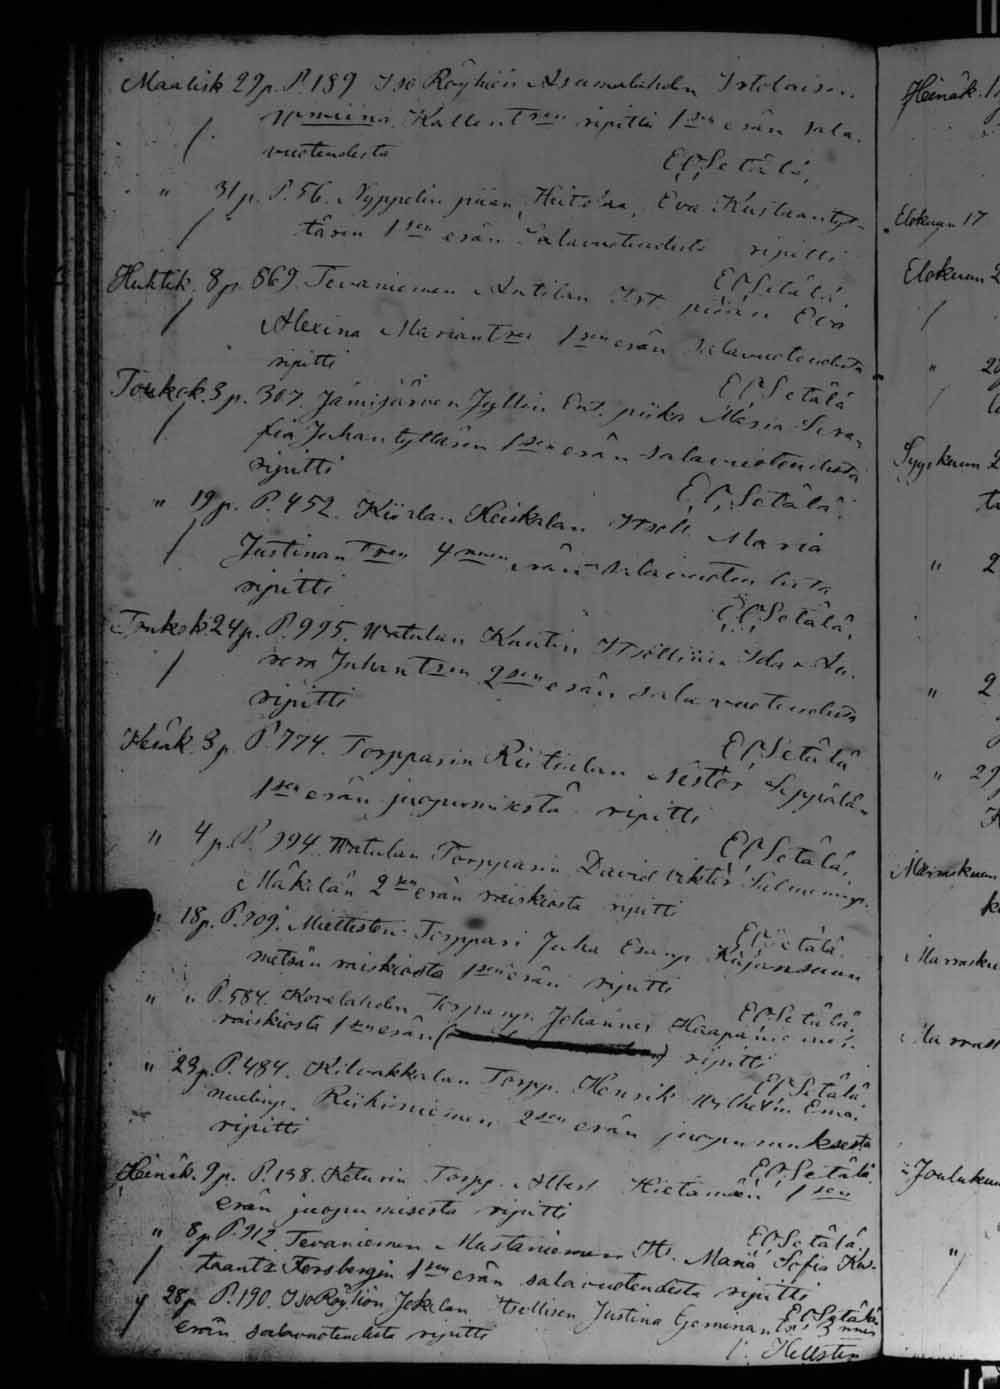 Maalisk 29p. P. 189 Iso Röyhiön Asumalahden Irtolaisen
Kallent ren ripitti 1 sen erän sala-
vuoteudesta
E C Setälä.
" 31p. P. 56. Nyppelin piian, Heits aa, Eva Kustaantyt-
tären 1 sen erän Salavuoteudesta ripitti
E C Setälä.
Huhtik. 8p. 869. Tevaniemen Antilan Irt. piian Eva
Alexina Mariant ren 1 sen erän salavuoteudesta
ripitti
E C Setälä
Toukok. 3p. 307. Jämijärven Jyllin Ent. piika Maria Sera-
fia Juhantyttären 1 sen erän salavuoteudesta
ripitti
E C Setälä.
" 19p. P. 452. Heiskalan Itsell. Maria
Justinan Tren 4 nnen erän salavuoteudesta
ripitti
E C Setälä.
Toukok 24p. P. 995. Watulan Itsellisen Ida
Juhant ren 2 sen erän salavuoteudesta
ripitti
E C Setälä
Heinäk. 3p. P. 774. Torpparin Riitialan Nestor Seppälä-
1 sen erän juopumisesta ripitti
E C Setälä.
" 4p. P. 994. Watulan Torpparin David Viktor Salominp.
Mäkelän 2 sen erän raiskiosta ripitti
E C Setälä.
" 18p. P. 709. Miettisten Torppari Juha Esanp. Kajansuun
metsän raiskiosta 1 sen erän ripitti
E C Setälä.
" " P. 584. Kovelahden Torpanp. Johannes Haapanie mes.
raiskiosta 1 sen erän ( ) ripitti
E C Setälä
" 23p. P. 484. Kilvakkalan Torpp. Henrik Wilhelm Ema-
nuelinp. Riikiniemen 2 sen erän juopumuksesta
ripitti
E C Setälä.
Heinäk. 9p. P. 138. Keturin Torpp. Albert Hietamäen 1 sen
erän juopumisesta ripitti
E C Setälä.
" 8p P. 912. Tevaniemen Mustaniemen Its. Maria Sofia Kus-
taantr Forsbergin 1 sen erän salavuoteudesta ripitti
E C Setälä.
" 28p P. 190. Iso Röyhiön Jokelan Itsellisen Justina 3 nnen
erän salavuoteudesta ripitti
Hellsten
Heinäk.
Elokuun 17
Elokuun 2
" 20
Syyskuun 2
" 2
" 2
" 29
Marraskuun
Marrasku
Marrask
Joulukuu
"